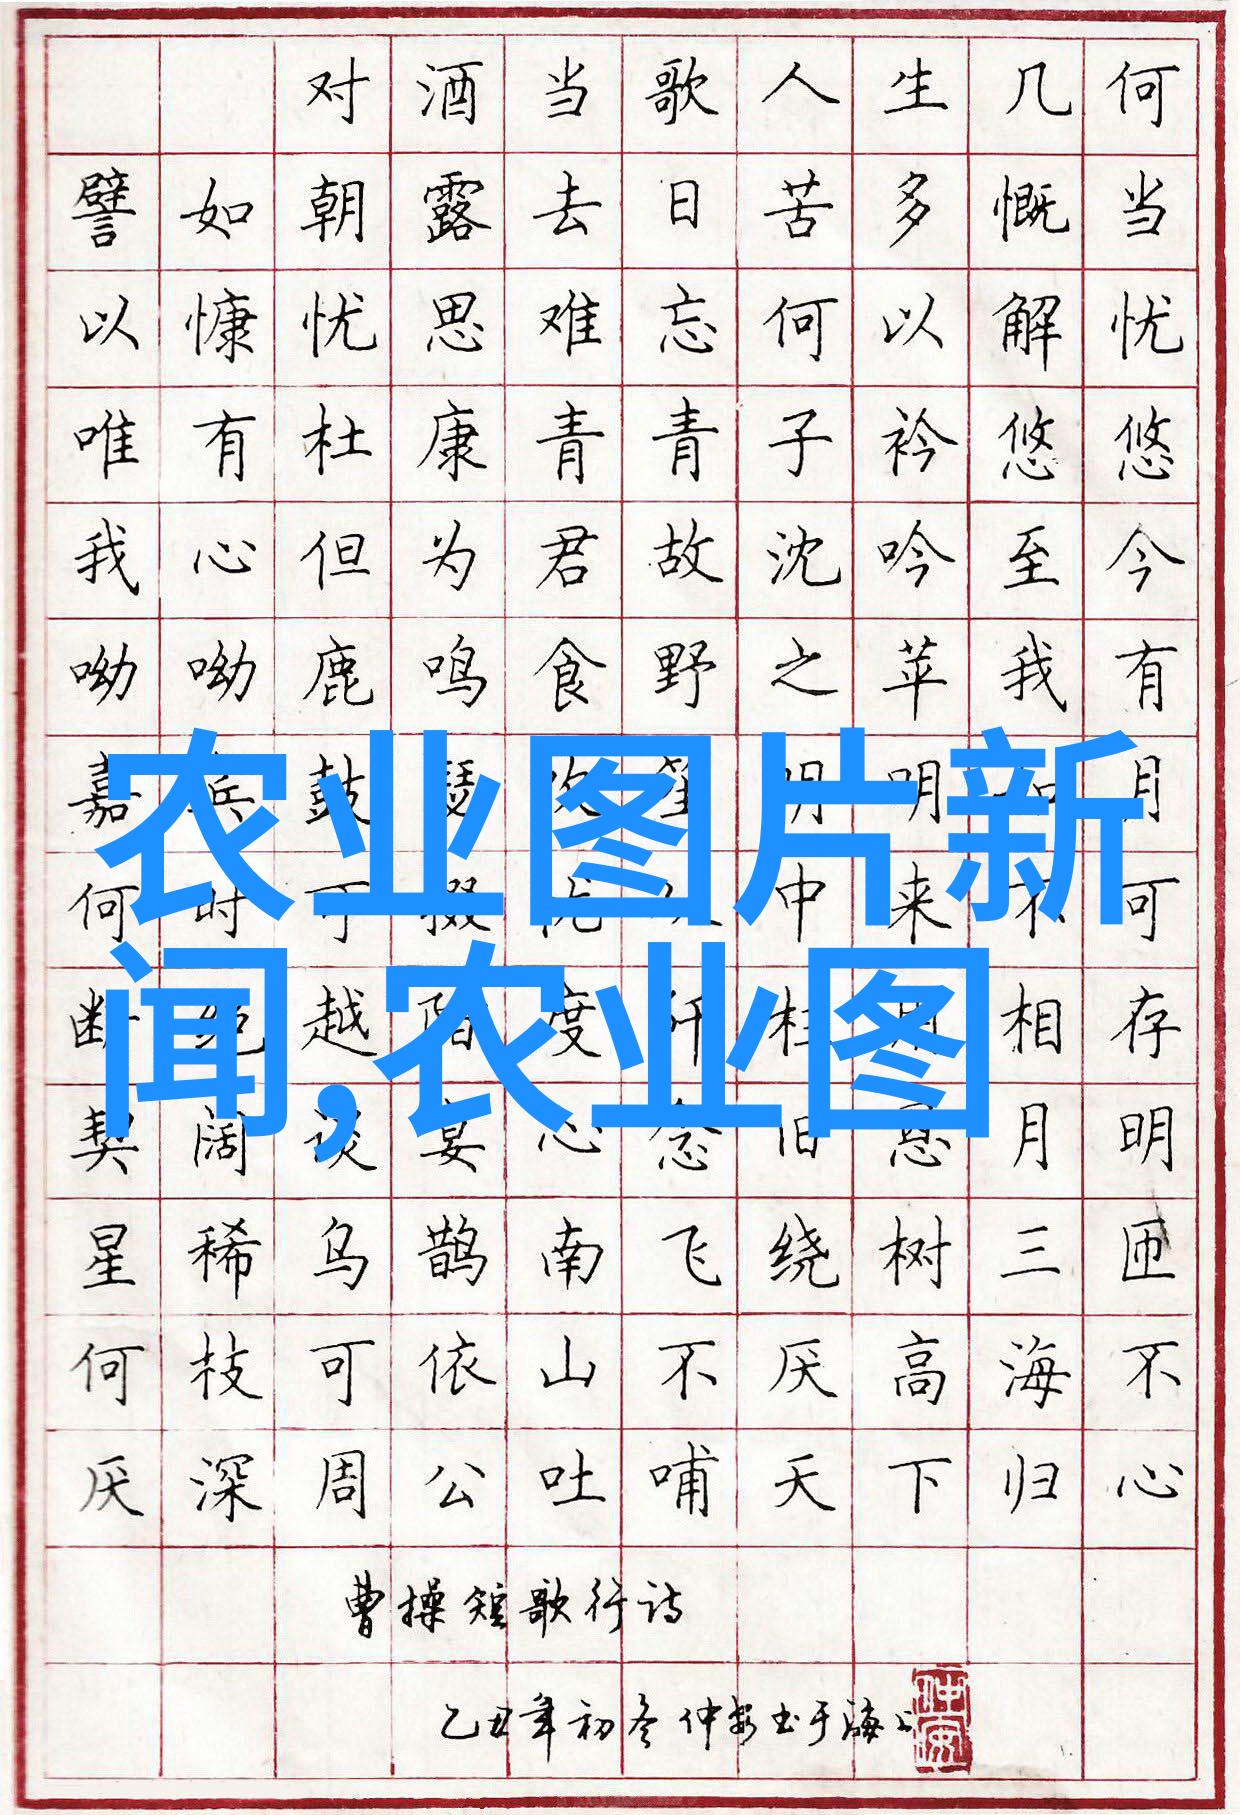 对酒当歌人生几何
譬如朝露去日苦多慨当
以慷忧思难忘何以解忧
唯有杜康青青子衿悠悠
我心但为君故沈吟至今
呦呦鹿鸣食野之苹我有
嘉宾鼓瑟吹笙明明如月
农业图片新
何时可掇忧从中来不可
断绝越陌度阡枉用相存
闻,农业图
契阔谈宴心念旧恩月明
星稀乌鹊南飞绕树三匝
何枝可依山不厌高海不
厌深周公吐哺天下归心
曹操短歌行诗
乙丑年初冬仲安书于海上
仲安